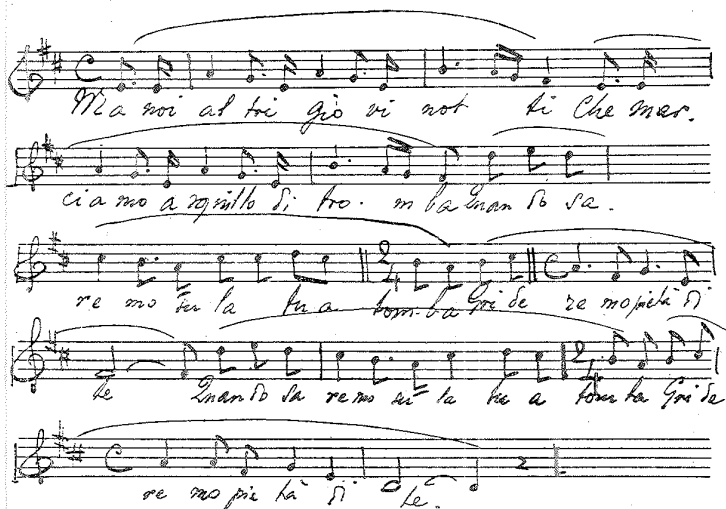 Ma noi al tri gio vi not ti che mar.
cia mo a squillo di tro. m ba Quan do sa.
re mo su la tu a tom-ba Gri de re mo pietà di
te Quando sa remo su la tu a tom ba Gri de
re mo pie tà di te.